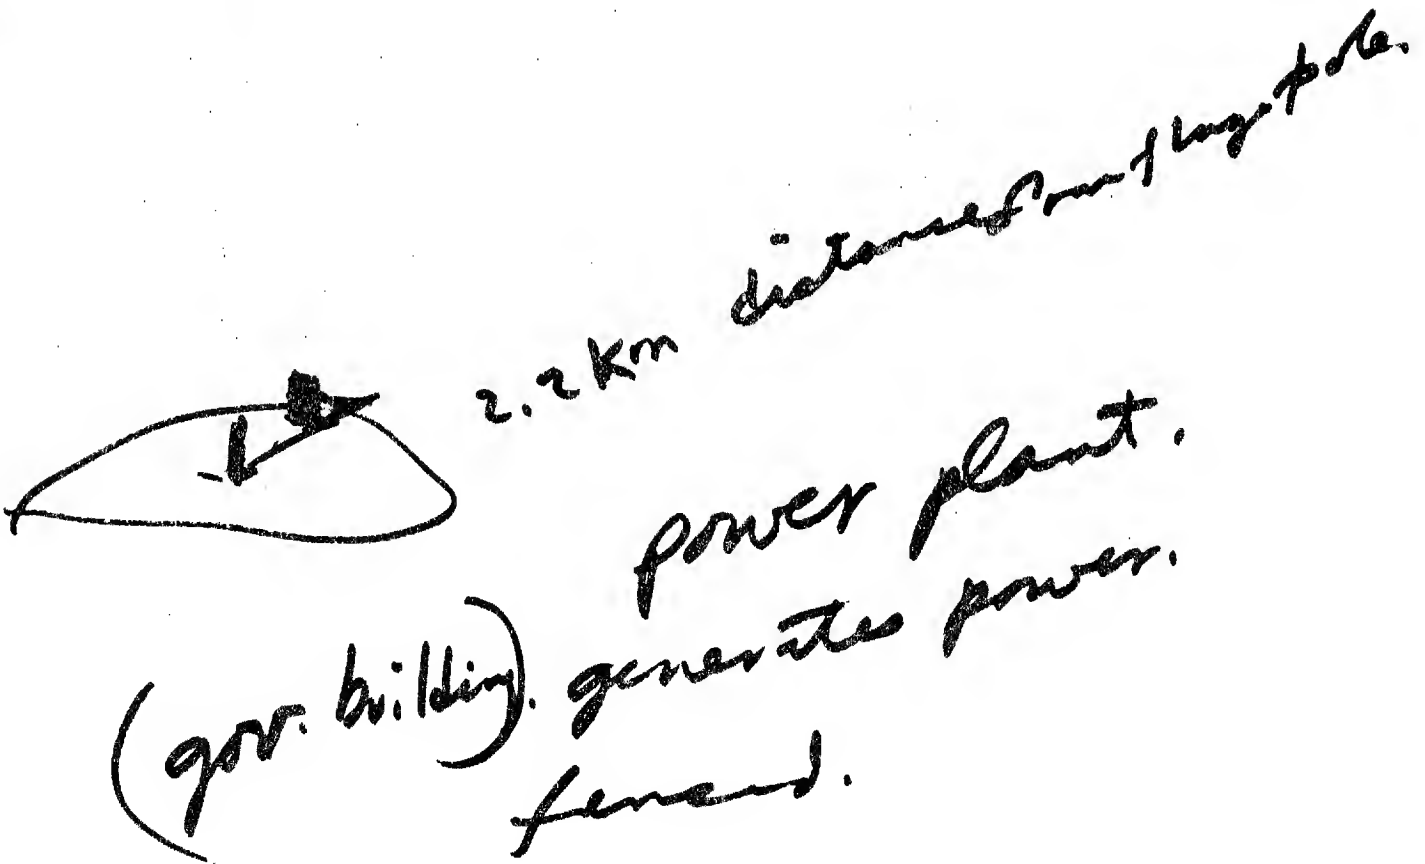 2.2 Km distance from flag-pole.
power plant.
(gov. building). generates power.
fenced.